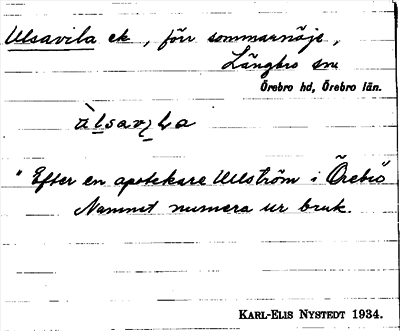 Ulsavila ek, förr sommarnöje,
Längbro sn
Örebro hd, Örebro län.
" Efter en apotekare Ullström i Örebro
Namnet numera ur bruk.
KARL-ELIS NYSTEDT 1934.